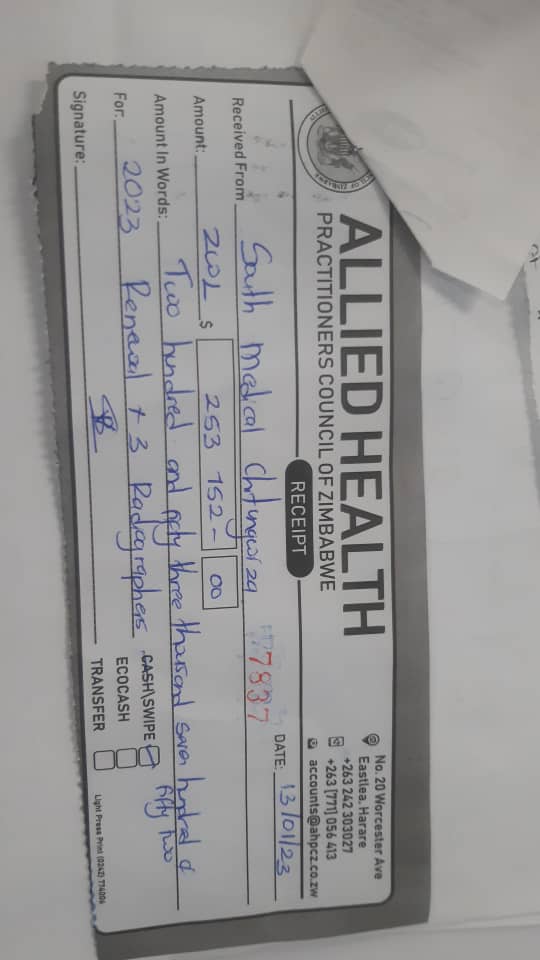 ALLIED HEALTH
PRACTITIONERS COUNCIL OF ZIMBABWE
No. 20 Worcester Ave
Eastlea, Harare
+263 242 303027
+263 (771) 056 413
accounts@ahpcz.co.zw
RECEIPT
DATE: 13/01/23
7837
Received From South Medical Chitungwiza
Amount: ZWL $ 253 752 - 00
Amount In Words: Two hundred and fifty three thousand seven hundred &
fifty two
For: 2023 Renewal + 3 Radiographers
CASH\SWIPE
ECOCASH
TRANSFER
Signature:
Light Press Print (0242) 774004